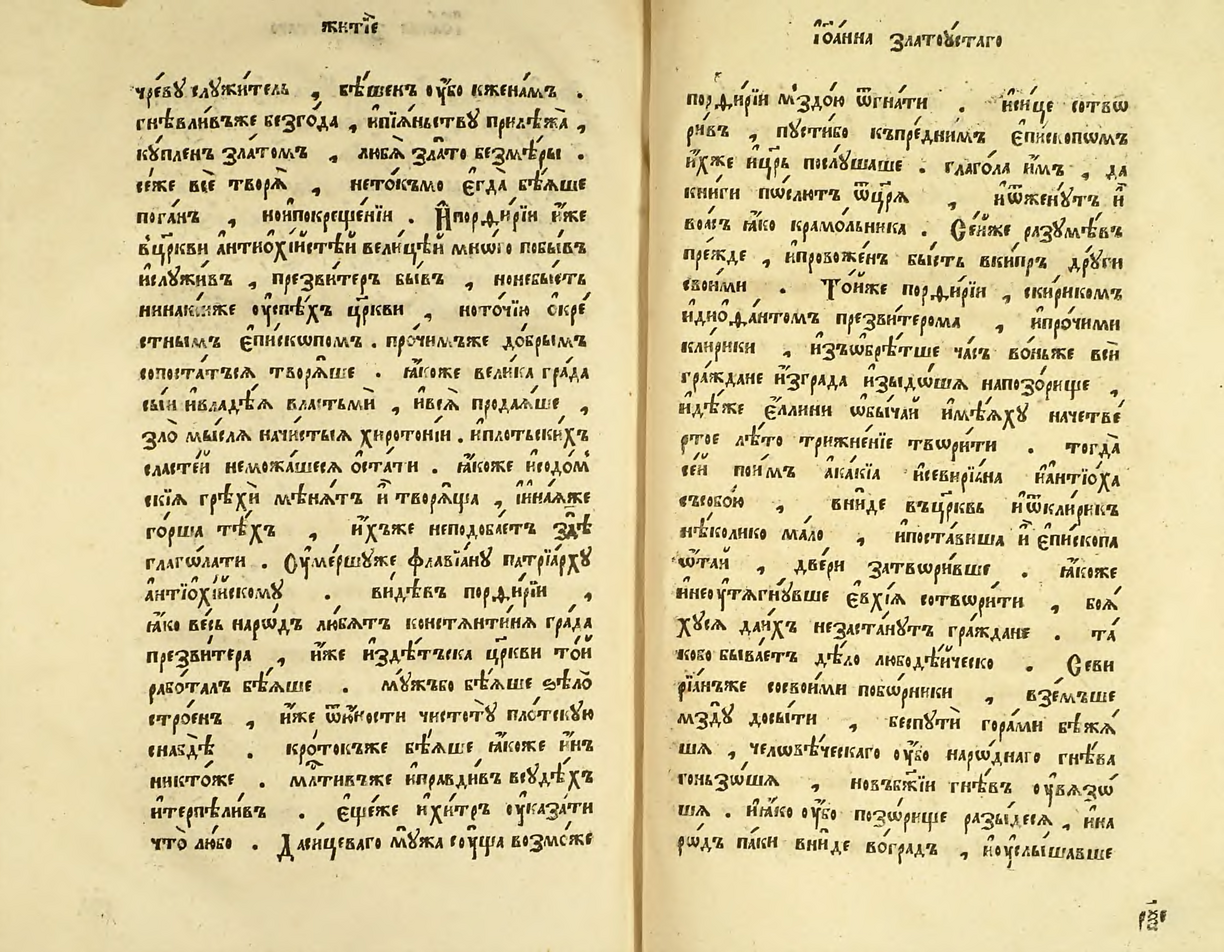 житїе
чре́ву слꙋжи́тель , бѣ́шенъ ᲂу҆́бо кженáмъ .
гнѣвли́въже безго́да , ипїѧ́ньствꙋ прилѣжа̀ ,
кꙋ́пленъ зла́томъ , любѧ̀ зла́то безмѣ́ры .
се́же всѐ творѧ̀ , нето́къмо є҆гда̀ бѣ́ѧше
пога́нъ , ноипокреще́нїи . И҆порфи́рїи и҆́же
вц҃ркви а҆нтиохі́истѣй вели́цѣй мно́гѡ побы́въ
ислꙋжи́въ , презви́теръ бы́въ , нонебы́сть
нинакі́иже ᲂу҆спѣ́хъ цр҃кви , ното́чїю ѻ҆кре́
стнымъ є҆пи́скѡпомъ . про́чимъже до́брымъ
сопоста́тъсѧ творѧ́ше . ꙗ҆́коже вели́ка гра́да
сы́и ивладѣ́ѧ властьми̂ , ивсѧ̀ продаѧ́ше ,
зло̀ мы́слѧ начи́стыѧ хирото́нїи . иплотьски́хъ
сласте́й неможа́шесѧ ѻ҆ста́ти . ꙗ҆́коже исодо́м
скїѧ грѣхѝ мѣнѧ́тъ и҆̀ творѧ́ща , іина́ѧже
го́рша тѣ́хъ , и҆́хъже неподоба́етъ здѣ̀
глаго́лати . Оу҆ме́ршꙋже флавїа́нꙋ патрїа́рхꙋ
а҆нтїохі́искомꙋ . ви́дѣвъ порфи́рїи ,
ꙗ҆́ко весь наро́дъ лю́бѧтъ констѧнти́нѧ гра́да
презви́тера , и҆́же издѣ́тъска цр҃кви то́и
рабо́талъ бѣ́ѧше . мꙋ́жъбо бѣ́ѧше ѕѣло̀
стро́енъ , и҆́же ѿю́ности чистотꙋ̀ пло́тскꙋю
снабдѣ̀ . кро́токъже бѣ́ѧше ꙗ҆́коже и҆́нъ
никто́же . млⷭ҇тивъже иправди́въ всꙋдѣ́хъ
итерпѣли́въ . є҆ще́же ихи́тръ ᲂу҆каза́ти
что̀ лю́бо . Даси́цеваго мꙋ́жа сꙋ́ща возмо́же
іѻа́нна златоꙋ́стаго
порфи́рїи мздо́ю ѿгна́ти . иси́це сотвѡ
ри́въ , пꙋсти́бо къпре́днимъ є҆пи́скопѡмъ
и҆́хже и҆цр҃ь послꙋ́шаше . глаго́ла и҆́мъ , да
кни́ги пѡ́слютъ ѿцр҃ѧ̀ , иѿженꙋ́тъ и҆̀
во́лсъ ꙗ҆́ко крамо́льника . Се́йже разꙋмѣ́въ
пре́жде , ипровоже́нъ бы́сть вки́пръ дрꙋ́ги
свои́ми . То́йже порфи́рїи , скири́комъ
идиофа́нтомъ презви́терома , ипро́чими
кли́рики , и҆зъѡбрѣ́тше ча́съ во́ньже вси́
гра́ждане и҆згра́да и҆зыдо́шѧ напозо́рище ,
и҆дѣ́же є҆́ллини ѡ҆бы́чай и҆мѣ́ѧхꙋ начетве́
ртое лѣ́то трижне́нїе твѡри́ти . тогда̀
се́й пои́мъ а҆ка́кїа исевирїа́на иа҆нтїо́ха
съсобо́ю , вни́де въцр҃квь иѿкли́рикъ
нѣ́колико ма́ло , ипоста́виша и҆̀ є҆пи́скопа
ѡ҆та́й , две́ри затвори́вше . ꙗ҆́коже
инеᲂу҆тѧгнꙋ́вше є҆вхі́ѧ сотвѡри́ти , боѧ́
хꙋсѧ да́ихъ незаста́нꙋтъ гра́ждане . та́
кобо быва́етъ дѣ́ло любодѣ́йческо . Севи
рїа́нъже сосвои́ми побо́рники , взе́мъше
мздꙋ̀ досы́ти , беспꙋтѝ гора́ми бѣжѧ́
шѧ , человѣ́ческаго ᲂу҆́бо наро́днаго гнѣ́ва
гоньзо́шѧ , новъбж҃їи гнѣ́въ ᲂу҆вѧзѡ́
шѧ . иꙗ҆́ко ᲂу҆́бо позо́рище разы́десѧ , ина
ро́дъ па́ки вни́де вогра́дъ , иᲂу҆слы́шавше